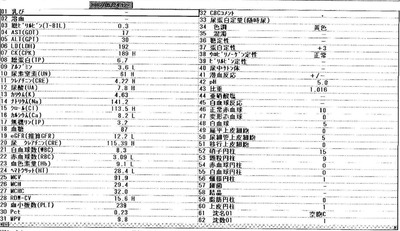 01 乳び
02 溶血
03 総ビリルビン(T-BIL) 0.3
04 AST(GOT) 17
05 ALT(GPT) 38
06 LD(LDH) 192
07 CK(CPK) 189 H
08 総蛋白(TP) 6.7
09 アルブミン 3.6 L
10 尿素窒素(UN) 61 H
11 クレアチニン(CRE) 4.22 H
12 尿酸(UA) 7.8 H
13 カリウム(K) 4.63
14 ナトリウム(Na) 141.2
15 クロール(Cl) 113.5 H
16 カルシウム(Ca) 8.2 L
17 無機リン(IP) 3.2
18 血糖 87
19 eGFR(推算GFR) 12.2 L
20 尿 クレアチニン(CRE) 115.39 H
21 白血球数(WBC) 8.3
22 赤血球数(RBC) 3.09 L
23 血色素量(Hb) 9.1 L
24 ヘマトクリット(HT) 28.4 L
25 MCV 91.9
26 MCH 29.4
27 MCHC 32.0
28 RDW-CV 15.6 H
29 血小板数(PLT) 239
30 Pct 0.23
31 MPV 9.8
32 CBCコメント
33 尿蛋白定量(随時尿)
34 色調 黄色
35 混濁
36 糖定性
37 蛋白定性 +3
38 ウロビリノーゲン定性 正常
39 ビリルビン定性
40 尿中ケトン体
41 潜血反応 +/-
42 pH 5.0
43 比重 1.016
44 亜硝酸塩
45 白血球反応
46 正常赤血球 10
47 変形赤血球 0
48 白血球 5
49 扁平上皮細胞 0
50 尿細管上皮細胞 5
51 移行上皮細胞 0
52 硝子円柱 15
53 顆粒円柱 9
54 赤血球円柱 0
55 白血球円柱 0
56 蝋様円柱 1
57 細菌
58 結晶
59 脂肪円柱 0
60 上皮円柱 1
61 沈名01 空胞C
62 沈数01 1